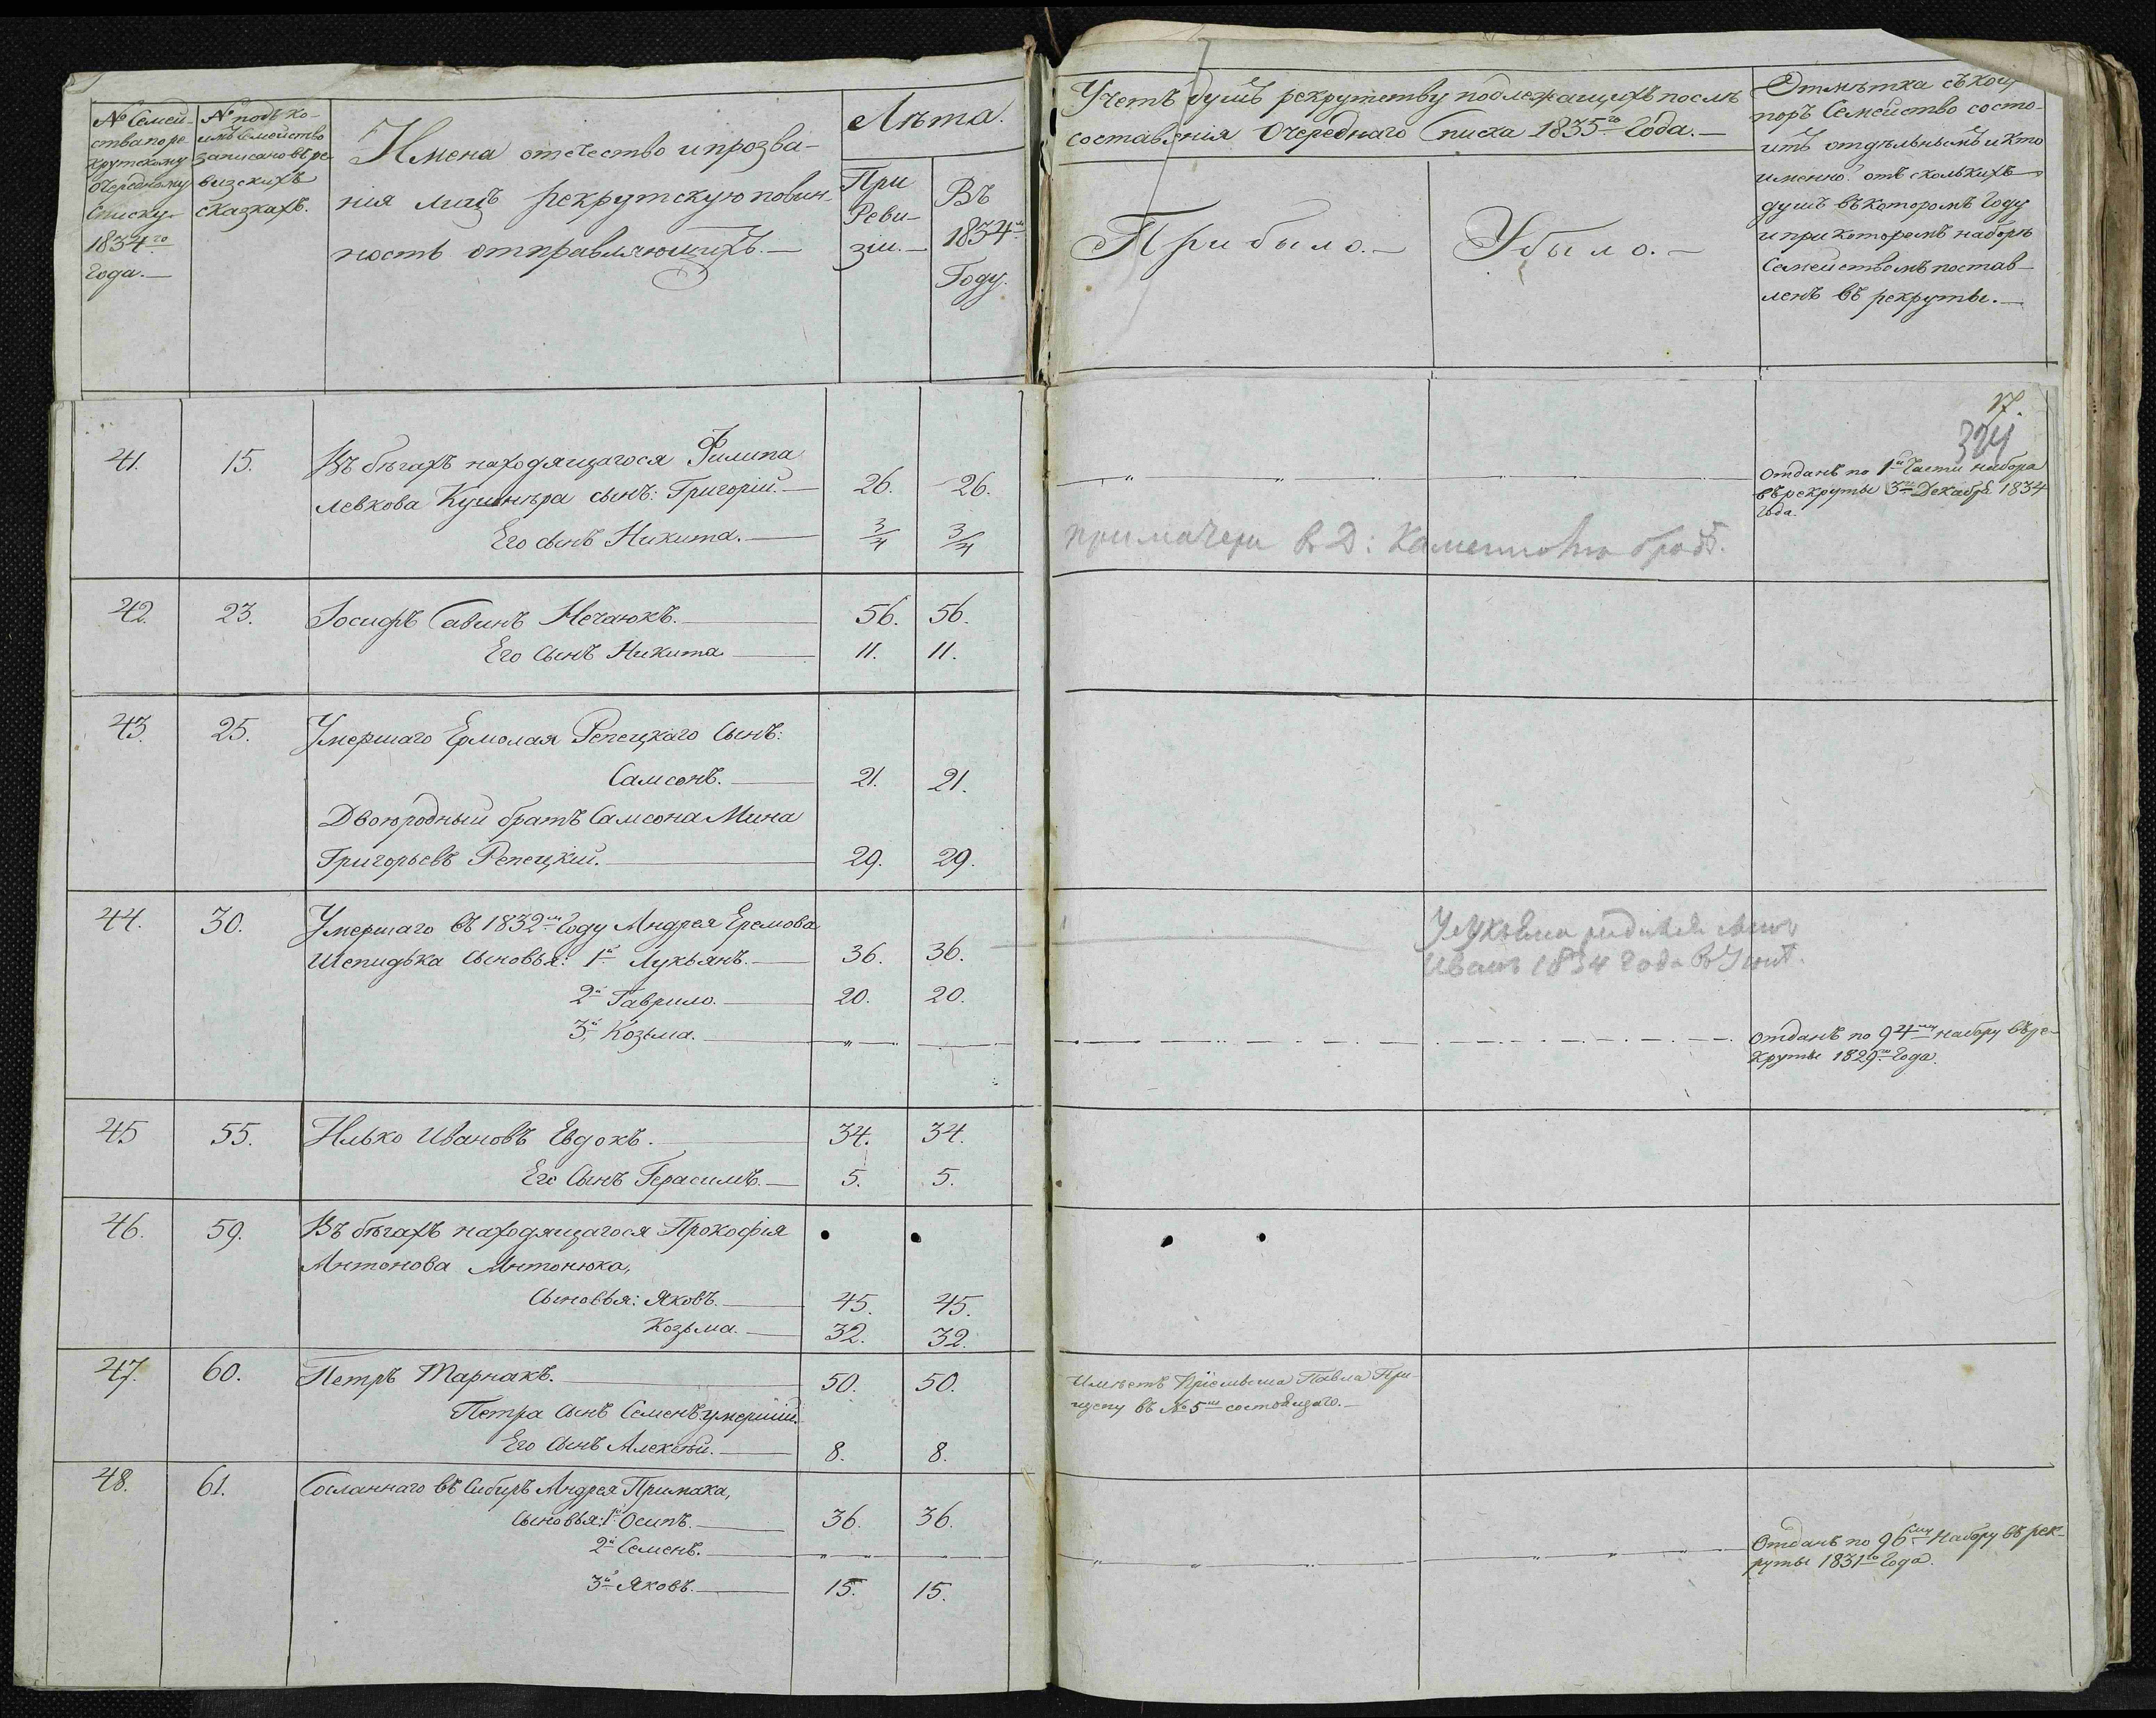 № Семей-
ства по ре
крутскому
очередному
Списку
1834го
года.
№ подъ ко-
имъ Семейство
записано въ ре
визскихъ
сказкахъ.
Имена отчество и прозва-
нія лицъ рекрутскую повин-
ность отправляющихъ.
Лѣта.
При
Реви-
зіи.
Въ
1834м
Году.
Учетъ душъ рекрутству подлежащихъ послѣ
составленія Очереднаго Списка 1835го Года.
Прибыло.
Убыло.
Отмѣтка съ кои
поръ Семейство состо-
итъ отдѣльнымъ и кто
именно отъ сколькихъ
душъ въ которомъ Году
и при которомъ наборѣ
Семействомъ постав-
ленъ въ рекруты.
17.
324
41. 15. Въ бѣгахъ находящагося Филипа
Левкова Кушнѣра сынъ: Григорій. 26. 26.
Отданъ по 1й Части набора
въ рекруты 3го Декабр. 1834
Года.
Его сынъ Никита. 3/4 3/4
въ Д: Каменной бродъ.
42. 23. Іосифъ Савинъ Нечаюкъ. 56. 56.
Его Сынъ Никита 11. 11.
43. 25. Умершаго Ермолая Репецкаго Сынъ:
Самсонъ. 21. 21.
Двоюродный братъ Самсона Мина
Григорьевъ Репецкій. 29. 29.
44. 30. Умершаго въ 1832м Году Андрея Еремова
Шепидька Сыновья: 1й Лукьянъ. 36. 36.
У Лукьяна родился сынъ
Иванъ 1834 года
2й Гаврило. 20. 20.
3й Козьма. „
Отданъ по 94му набору въ ре-
круты 1829го Года.
45 55. Илько Ивановъ Евдокъ. 34. 34.
Его Сынъ Герасимъ. 5. 5.
46. 59. Въ бѣгахъ находящагося Прокофія
Антонова Антонюка,
Сыновья: Яковъ. 45. 45.
Козьма. 32. 32.
47. 60. Петръ Тарнакъ. 50. 50.
Имѣетъ Пріемыша Павла При-
щепу въ № 5м состоящаго.
Петра Сынъ Семенъ умершій.
Его Сынъ Алексѣй. 8. 8.
48. 61. Сосланнаго въ Сибирь Андрея Примака,
Сыновья: 1й Осипъ. 36. 36.
2й Семенъ.
Отданъ по 96му Набору въ рек-
руты 1831го Года.
3й Яковъ. 15. 15.